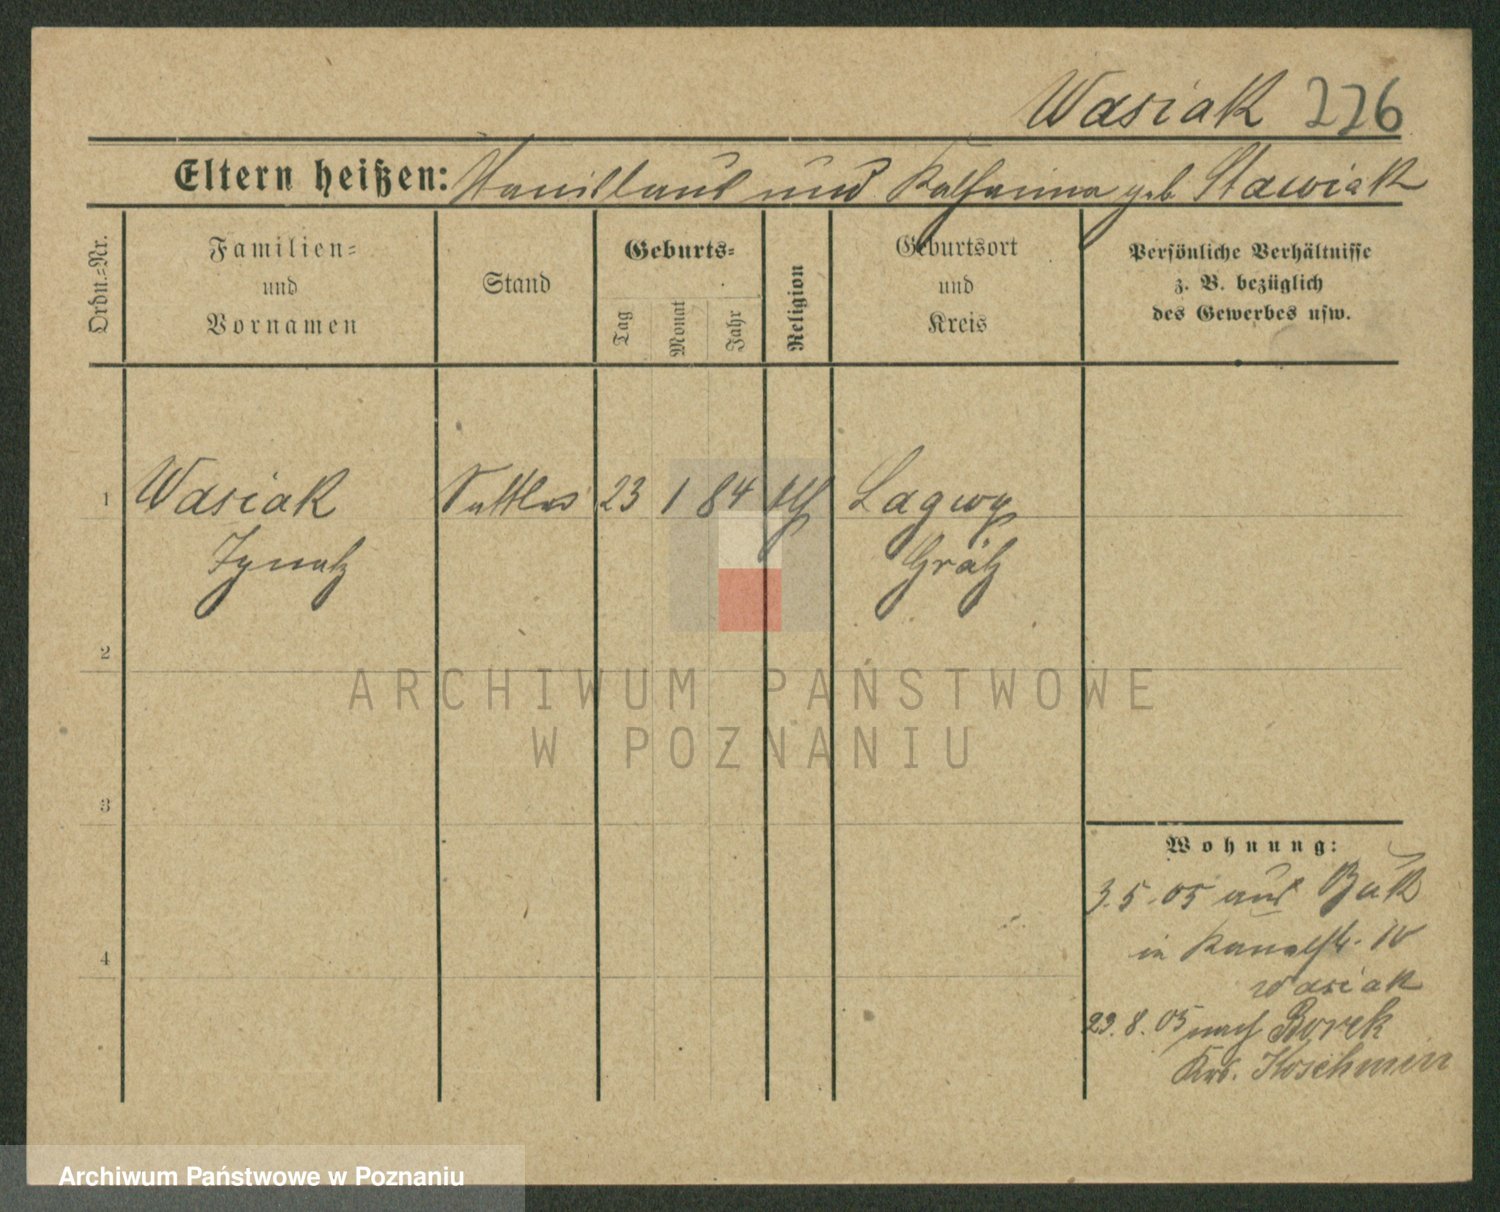 Wasiak 226
Eltern heißen: Stanislaus und Katharina geb Stawiak
Ordn.-Nr.
Familien-
und
Vornamen
Stand
Geburts-
Tag
Monat
Jahr
Religion
Geburtsort
und
Kreis
Persönliche Verhältnisse
z. B. bezüglich
des Gewerbes usw.
1 Wasiak Sattler 23 1 84 kth Lagwy
Ignatz Grätz
2
3
4
Wohnung:
3.5.05 aus Buk
in Kanalstr. 10
Wasiak
23.8.05 nach Borek
Krs. Koschmin
ARCHIWUM PAŃSTWOWE
W POZNANIU
Archiwum Państwowe w Poznaniu